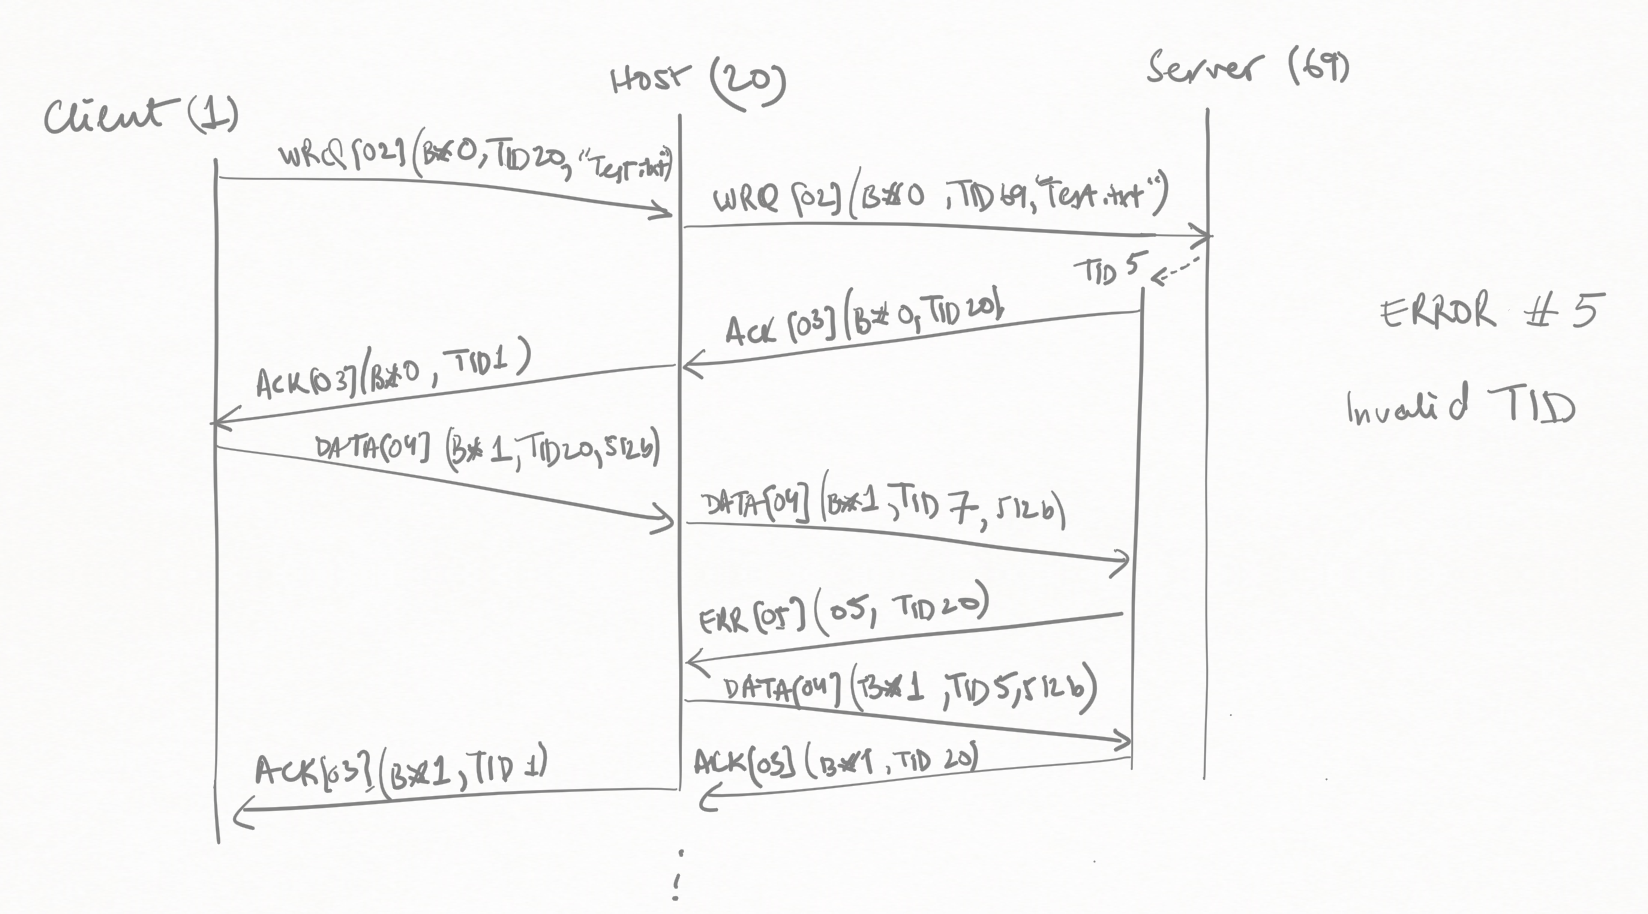 Client (1)
Host (20)
Server (69)
WRQ [02] (B#0, TID 20, "Test.txt")
WRQ [02] (B#0, TID 69, "Test.txt")
TID 5
Ack [03] (B#0, TID 20)
ACK [03] (B#0, TID 1)
DATA [04] (B#1, TID 20, 512b)
DATA [04] (B#1, TID 7, 512b)
ERR [05] (05, TID 20)
DATA [04] (B#1, TID 5, 512b)
ACK [03] (B#1, TID 20)
ACK [03] (B#1, TID 1)
ERROR # 5
Invalid TID